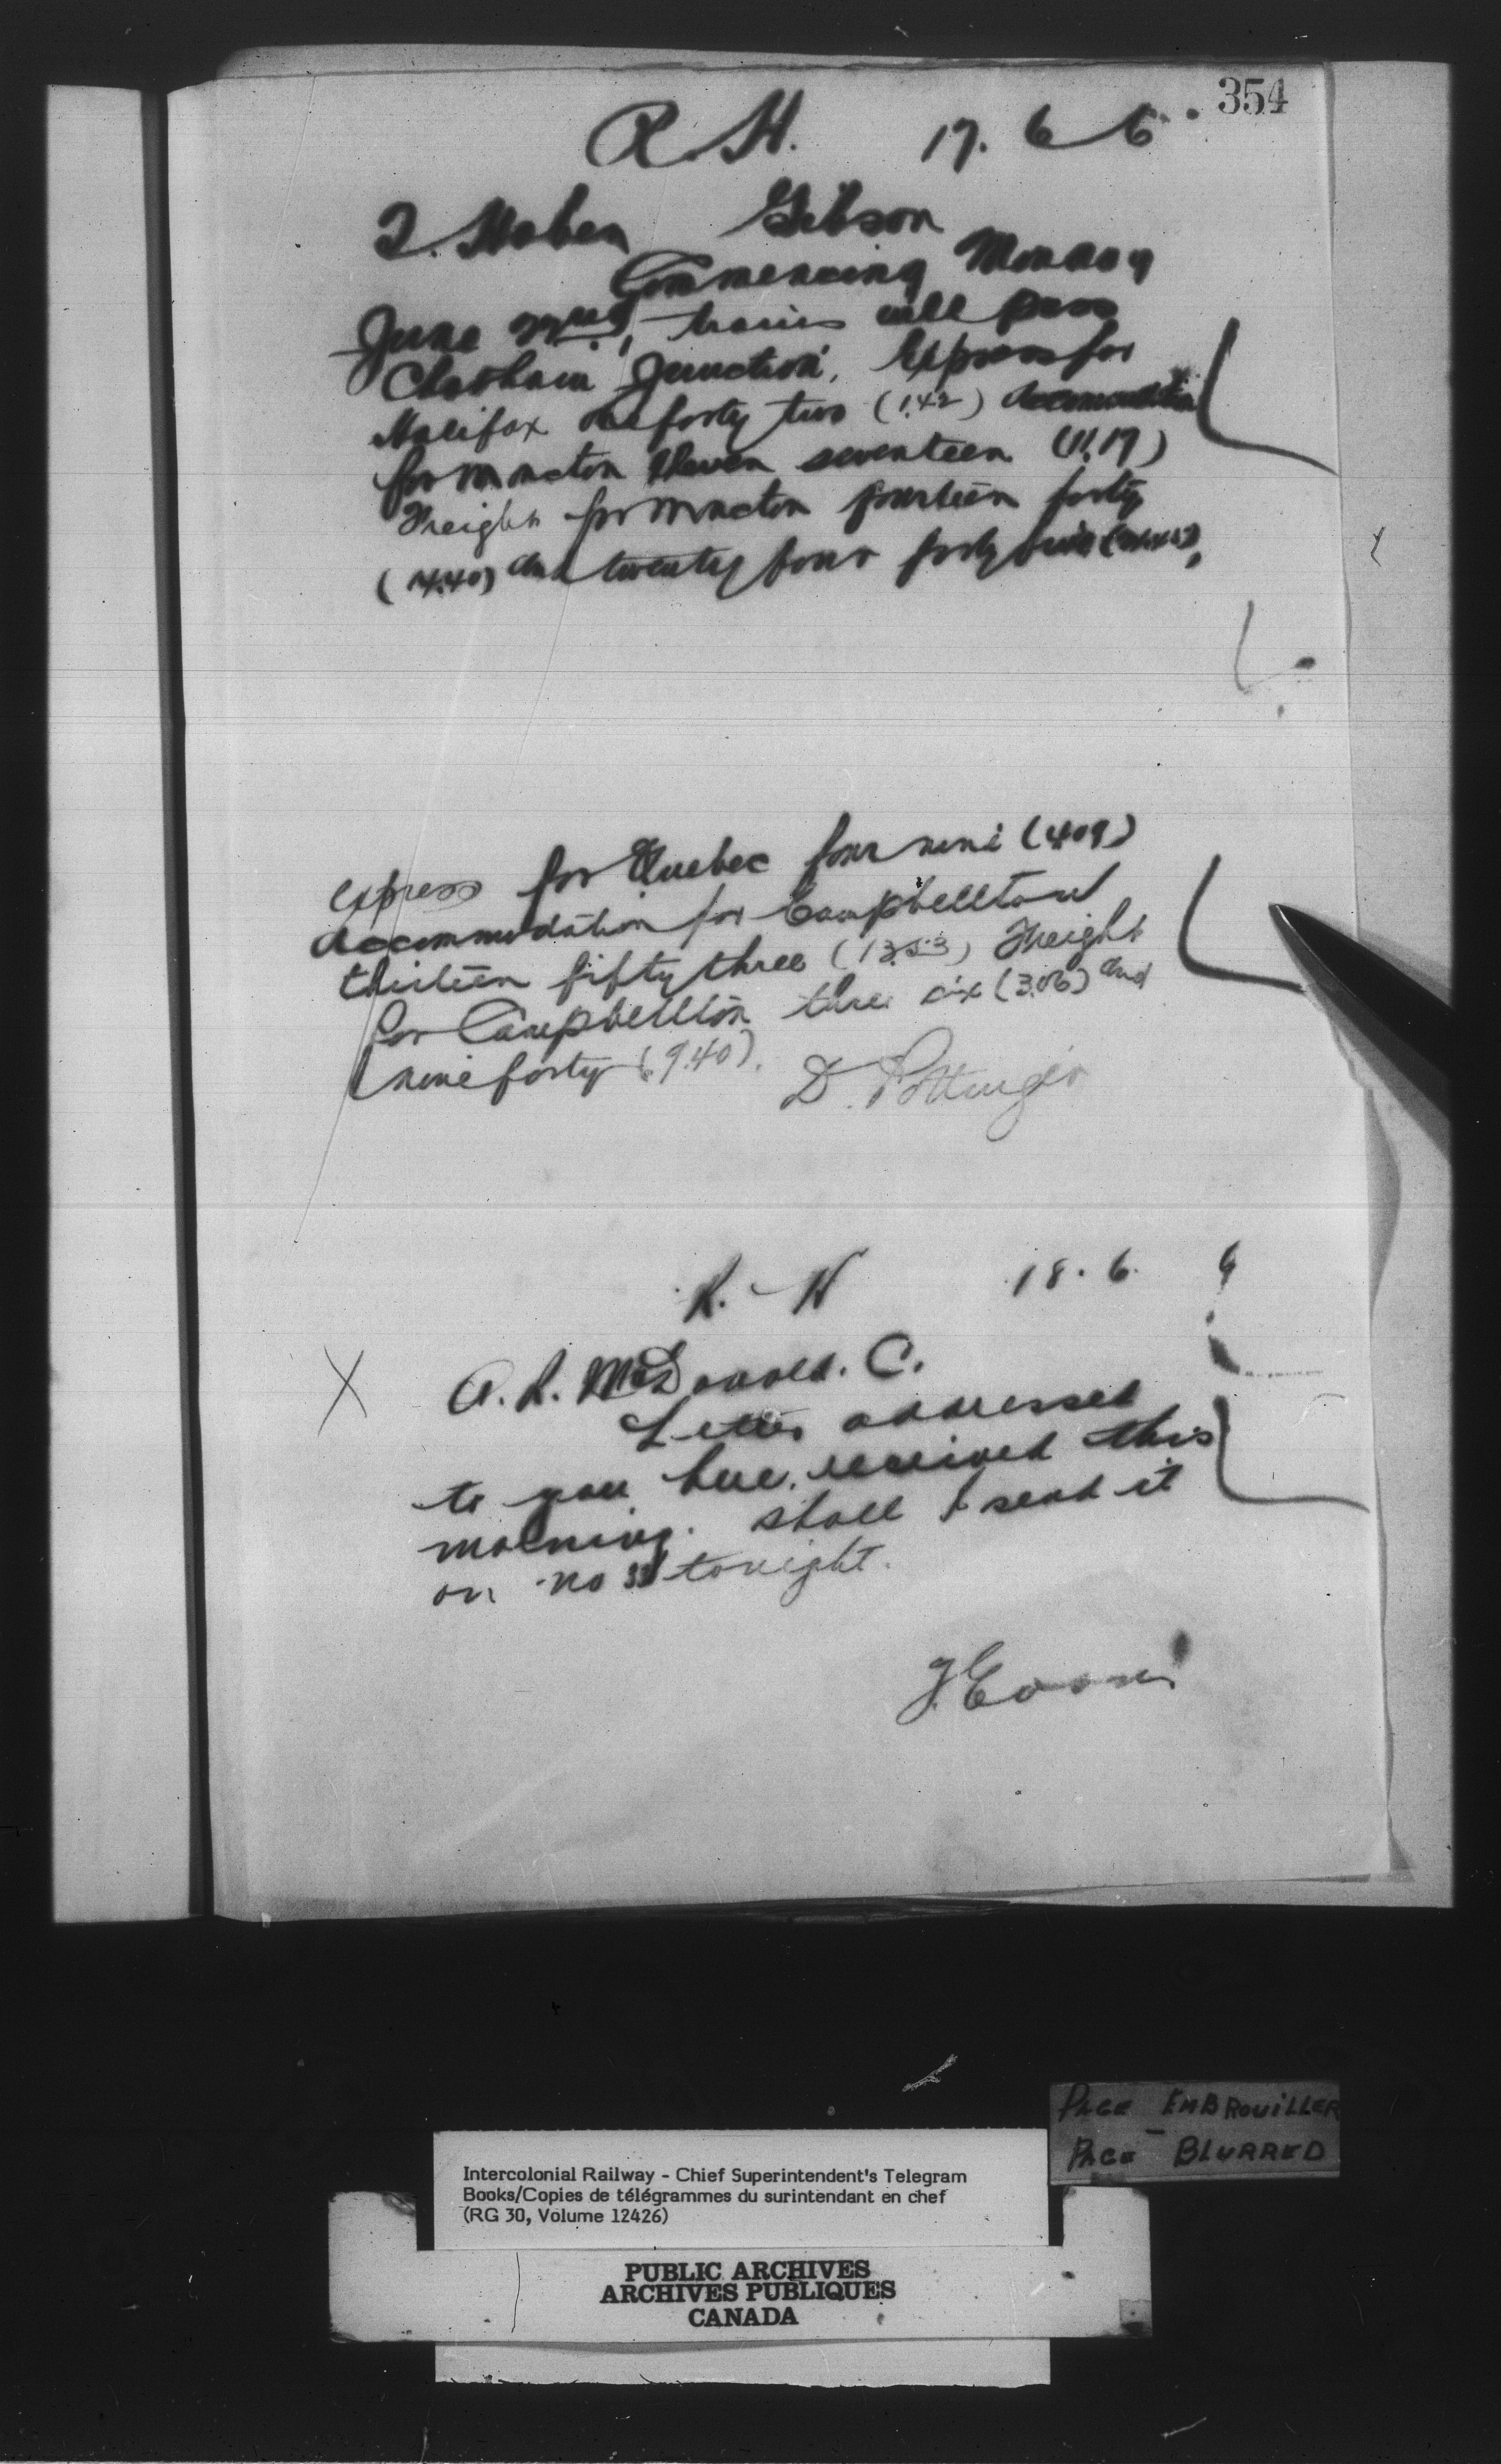 354
R. H. 17. 6 6
T. Hoben Gibson
Commencing Monday
June 22nd, trains will pass
Chatham Junction, Express for
Halifax one forty two (1.42) Accommodation
for Moncton Eleven seventeen (11.17)
Freight for Moncton fourteen forty
(14.40) and twenty four forty
express for Quebec four nine (4.09)
Accommodation for Campbellton
thirteen fifty three (13.53) Freight
for Campbellton three six (3.06) and
nine forty (9.40).
D. Pottinger
R. H 18. 6.
X A. R. McDonald. C.
Letter addressed
to you here, received this
morning. shall I send it
on no 33 tonight.
J. Evans
PAGE EMBROUILLER
PAGE BLURRED
Intercolonial Railway - Chief Superintendent's Telegram
Books/Copies de télégrammes du surintendant en chef
(RG 30, Volume 12426)
PUBLIC ARCHIVES
ARCHIVES PUBLIQUES
CANADA